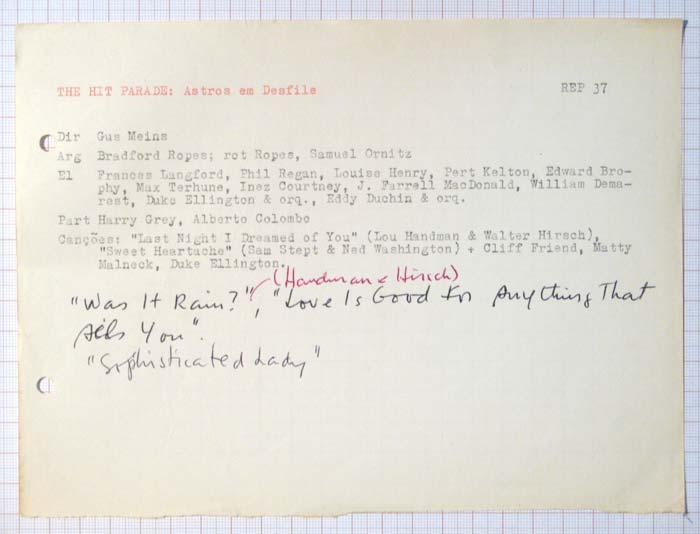 THE HIT PARADE: Astros em Desfile REP 37
Dir Gus Meins
Arg Bradford Ropes; rot Ropes, Samuel Ornitz
El Frances Langford, Phil Regan, Louise Henry, Pert Kelton, Edward Bro-
phy, Max Terhune, Inez Courtney, J. Farrell MacDonald, William Dema-
rest, Duke Ellington & orq., Eddy Duchin & orq.
Part Harry Grey, Alberto Colombo
Canções: "Last Night I Dreamed of You" (Lou Handman & Walter Hirsch),
"Sweet Heartache" (Sam Stept & Ned Washington) + Cliff Friend, Matty
Malneck, Duke Ellington.
(Handman & Hirsch)
"Was It Rain?", "Love Is Good for Anything That
Ails You".
"Sophisticated Lady"